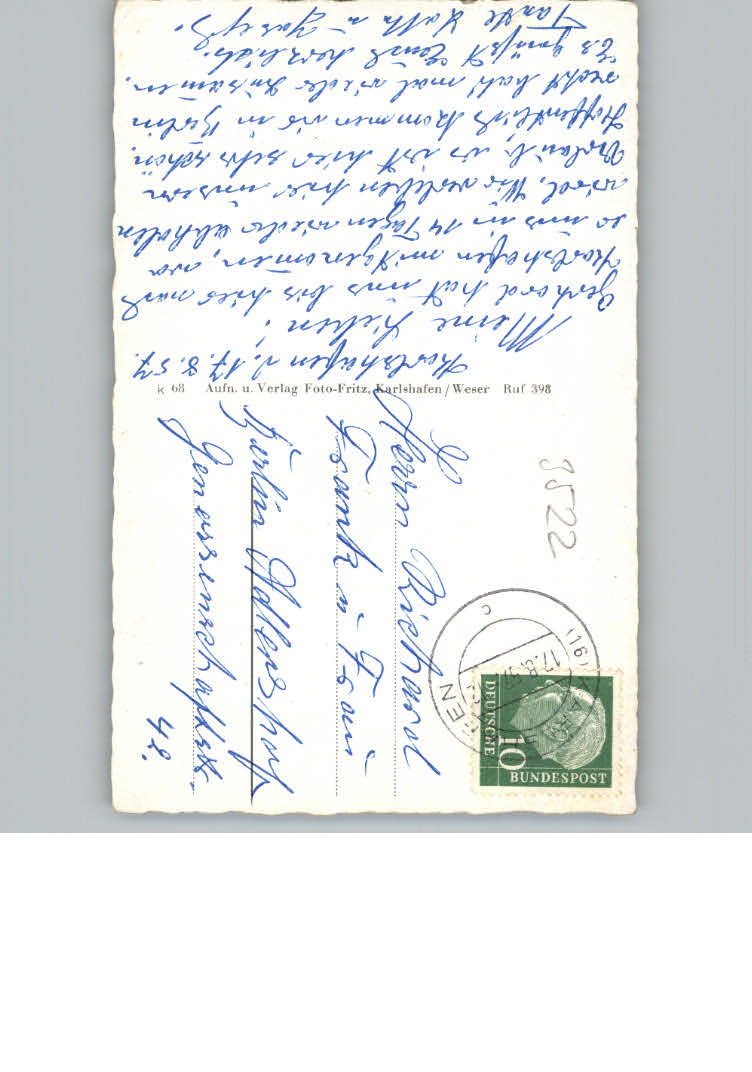 Karlshafen d. 17.8.57.
Meine Lieben!
Gerhard hat uns bis hier nach
Karlshafen mitgenommen, wo
er uns in 14 Tagen wieder abholen
wird. Wir verleben hier unsern
Urlaub, es ist hier sehr schön.
Hoffentlich kommen wir in Berlin
recht bald mal wieder zusammen.
Es grüßt Euch herzlich.
Tante Käth u.
k 68 Aufn. u. Verlag Foto-Fritz, Karlshafen/Weser Ruf 398
Herrn Richard
Frank u. Frau
Berlin Adlershof
Genossenschaftsstr.
42.
3522
(16) KARLSHAFEN
17.8.57
c
DEUTSCHE
10
BUNDESPOST